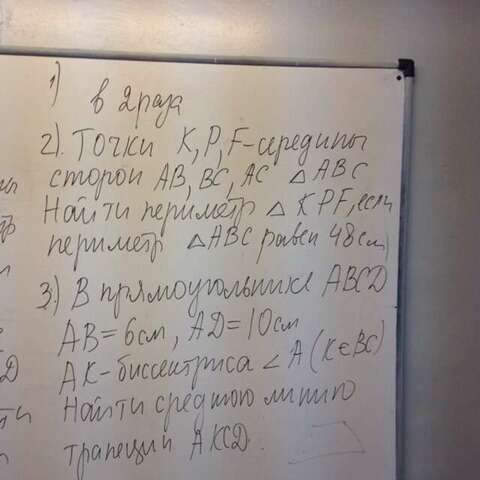 1)
в 2 раза
2). Точки K, P, F-середины
сторон AB, BC, AC △ ABC
Найти периметр △ KPF, если
периметр △ABC равен 48см
3.) В прямоугольнике ABCD
AB = 6см, AD = 10см
AK-биссектриса ∠ A (K∈BC)
Найти среднюю линию
трапеции AKCD.